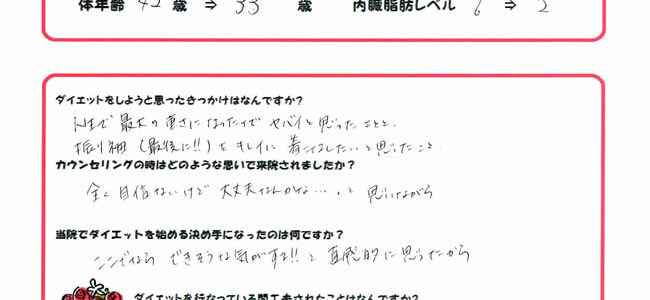 体年齢 42 歳 ⇒ 33 歳 内臓脂肪レベル 6 ⇒ 2
ダイエットをしようと思ったきっかけはなんですか?
人生で最大の重さになったのでヤバイと思ったことと、
振り袖(最後に!!)をキレイに着こなしたいと思ったこと
カウンセリングの時はどのような思いで来院されましたか?
全く自信ないけど大丈夫なんかな…、と思いながら
当院でダイエットを始める決め手になったのは何ですか?
ここでならできそうな気がする!!と直感的に思ったから
ダイエットを行なっている間工夫されたことはなんですか?